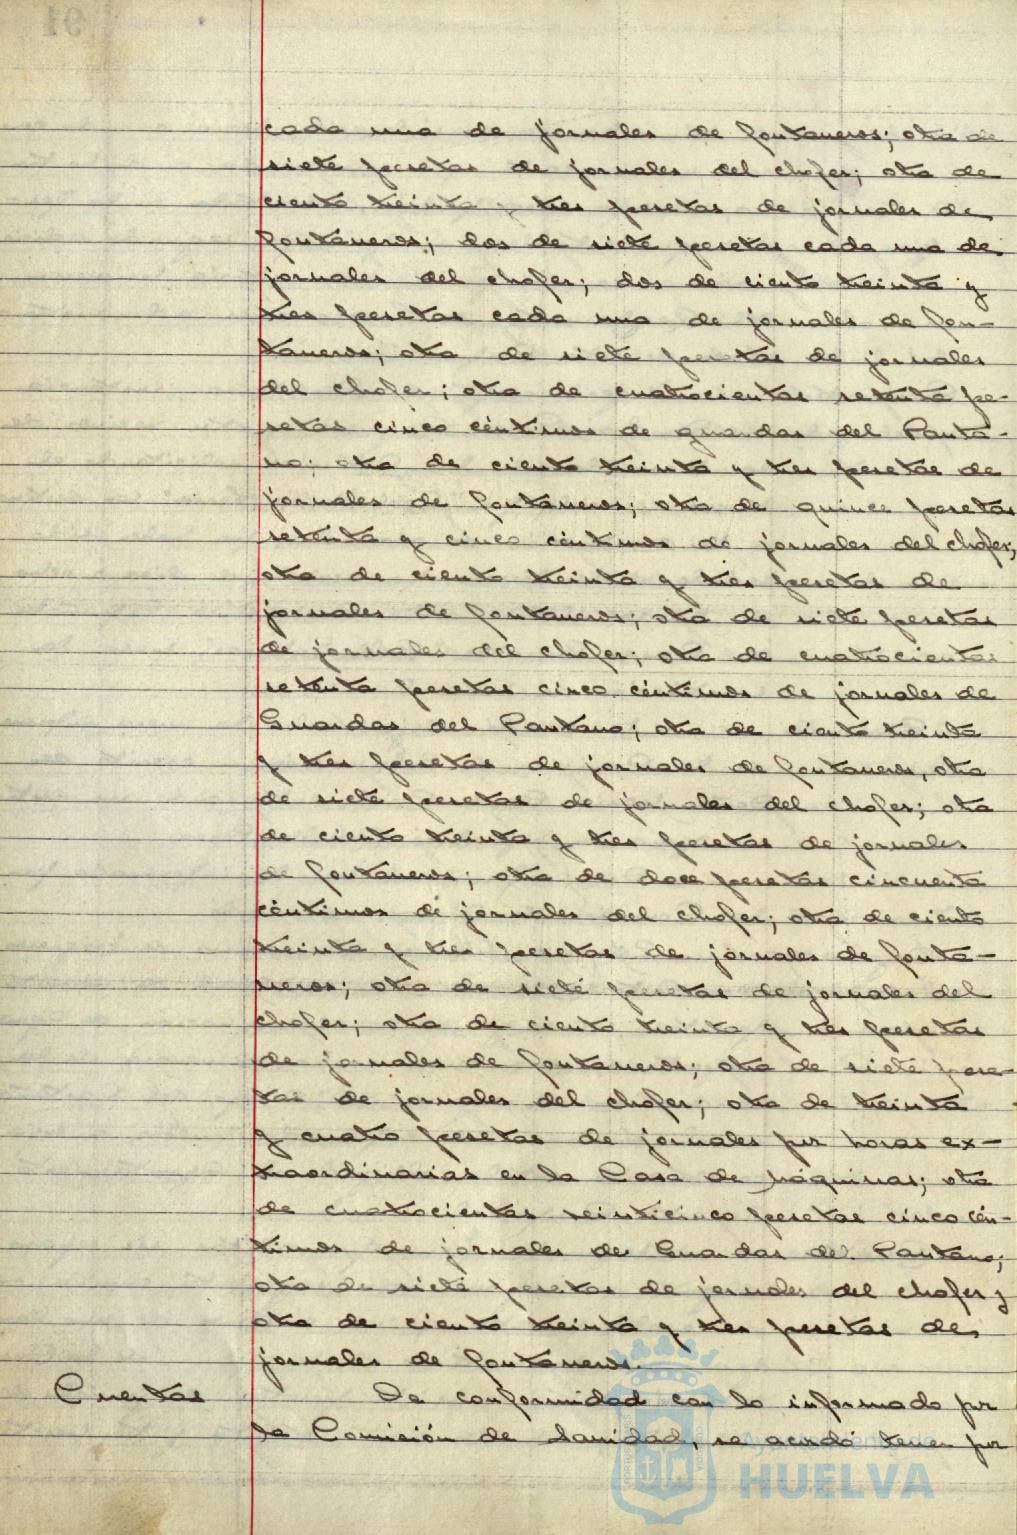 cada una de jornales de fontaneros; otra de
siete pesetas de jornales del chofer; otra de
ciento treinta y tres pesetas de jornales de
fontaneros; dos de siete pesetas cada una de
jornales del chofer; dos de ciento treinta y
tres pesetas cada una de jornales de fon-
taneros; otra de siete pesetas de jornales
del chofer; otra de cuatrocientas setenta pe-
setas cinco céntimos de guardas del Panta-
no; otra de ciento treinta y tres pesetas de
jornales de fontaneros; otra de quince pesetas
setenta y cinco céntimos de jornales del chofer;
otra de ciento treinta y tres pesetas de
jornales de fontaneros; otra de siete pesetas
de jornales del chofer; otra de cuatrocientas
setenta pesetas cinco céntimos de jornales de
Guardas del Pantano; otra de ciento treinta
y tres pesetas de jornales de fontaneros, otra
de siete pesetas de jornales del chofer; otra
de ciento treinta y tres pesetas de jornales
de fontaneros; otra de doce pesetas cincuenta
céntimos de jornales del chofer; otra de ciento
treinta y tres pesetas de jornales de fonta-
neros; otra de siete pesetas de jornales del
chofer; otra de ciento treinta y tres pesetas
de jornales de fontaneros; otra de siete pese-
tas de jornales del chofer; otra de treinta
y cuatro pesetas de jornales por horas ex-
traordinarias en la Casa de máquinas; otra
de cuatrocientas veinticinco pesetas cinco cén-
timos de jornales de Guardas del Pantano;
otra de siete pesetas de jornales del chofer y
otra de ciento treinta y tres pesetas de
jornales de fontaneros.
Cuentas De conformidad con lo informado por
la Comisión de Sanidad, se acordó tener por
Ayuntamiento de
HUELVA
91